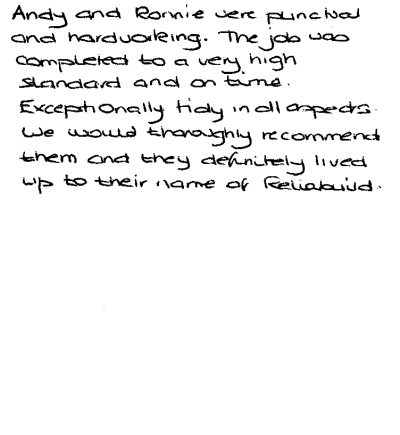 Andy and Ronnie were punctual
and hardworking. The job was
completed to a very high
standard and on time.
Exceptionally tidy in all aspects.
We would thoroughly recommend
them and they definitely lived
up to their name of Reliabuild.